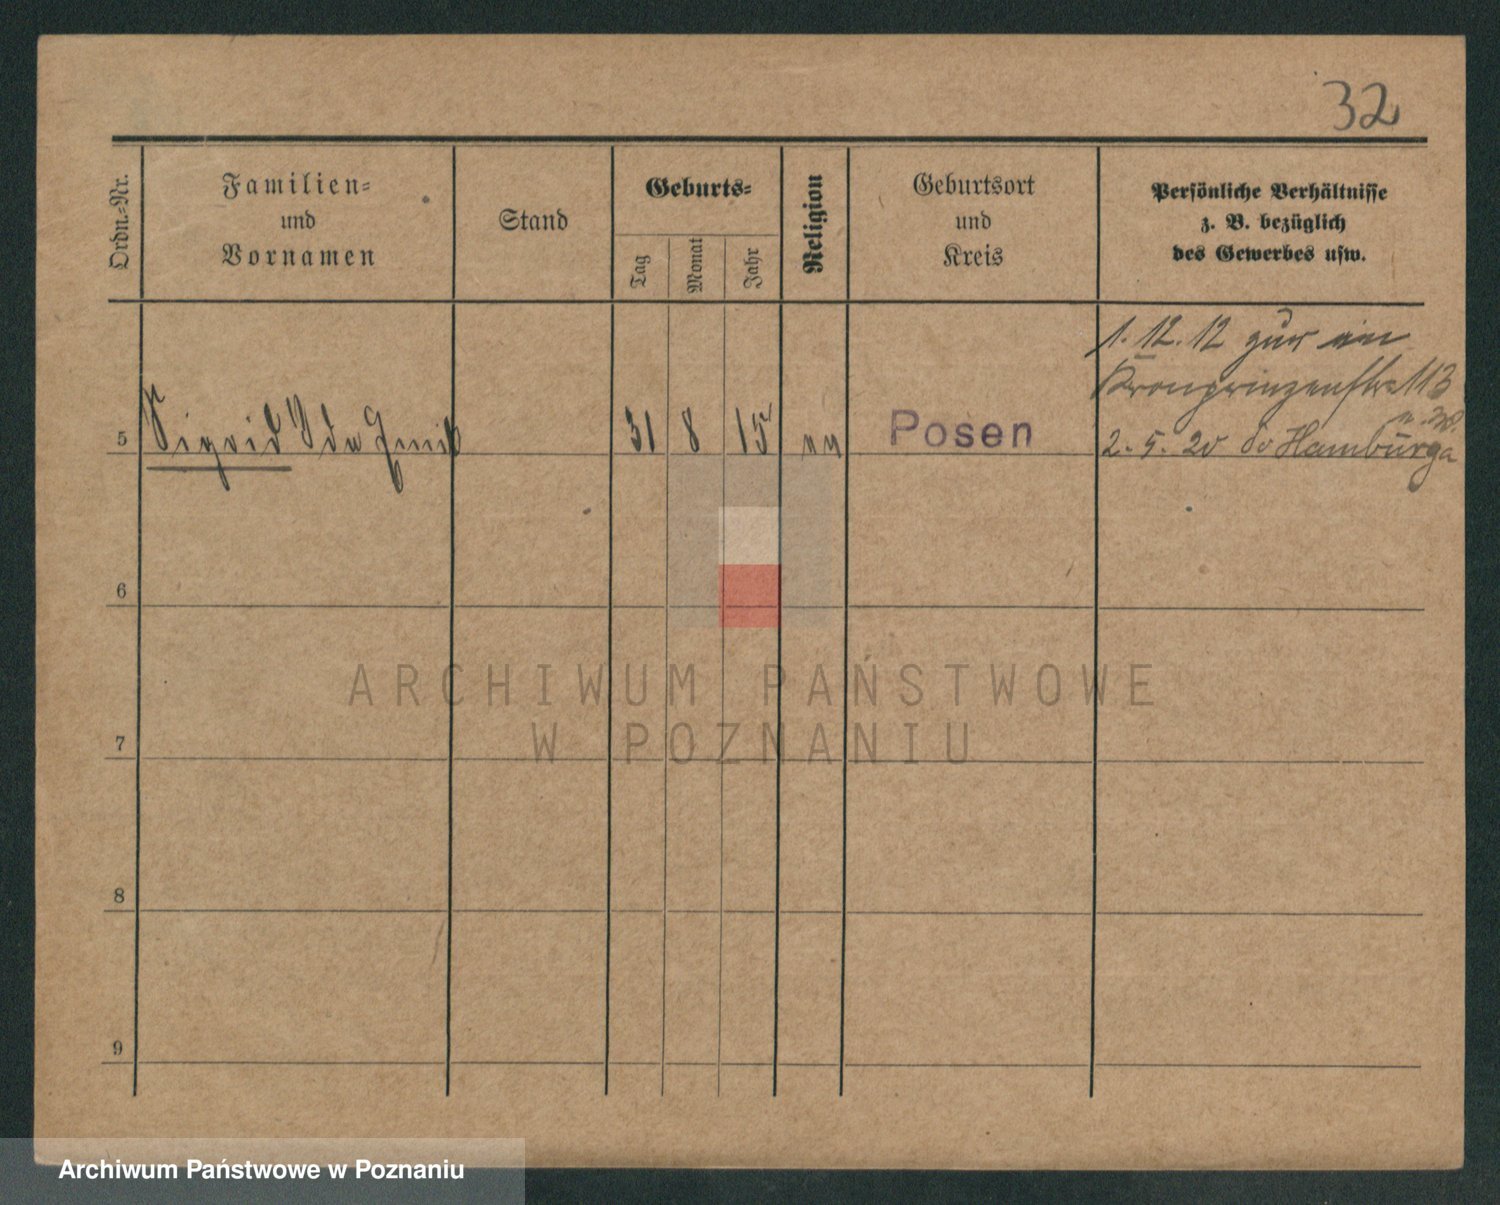 32
Ordn.-Nr.
Familien-
und
Vornamen
Stand
Geburts-
Tag
Monat
Jahr
Religion
Geburtsort
und
Kreis
Persönliche Verhältnisse
z. B. bezüglich
des Gewerbes usw.
1. 12. 12
Kronprinzenstr 113
5 Sigrid Ida 31 8 15 " " Posen 2. 5. 20 Hamburg
6
7
8
9
ARCHIWUM PAŃSTWOWE
W POZNANIU
Archiwum Państwowe w Poznaniu